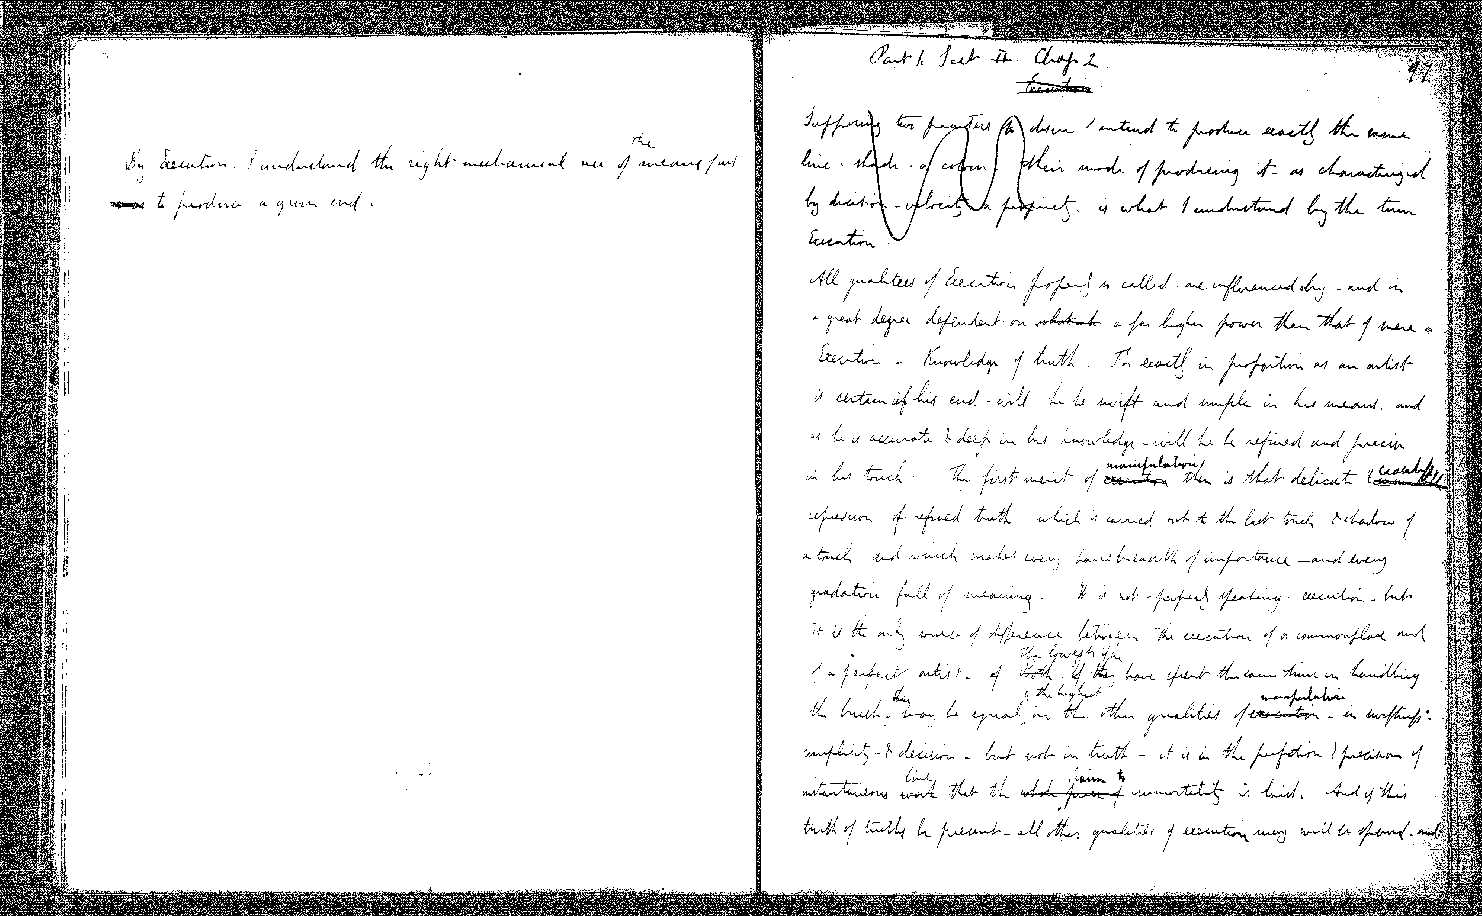 the
By Execution. I understand the right mechanical use of means
to produce a given end.
Part I. Sect II. Chap 2
97
Execution
Supposing two painters to desire / intend to produce exactly the same
line - shade - of colour, their mode of producing it - as characterized
by decision - velocity or propriety. is what I understand by the term
Execution
All qualities of Execution properly so called - are influenced by - and in
a great degree dependent on a far higher power than that of mere
Execution - Knowledge of truth. For exactly in proportion as an artist
is certain of his end - will he be swift and simple in his means. and
as he is accurate & deep in his knowledge - will he be refined and precise
manipulation
in his touch. The first merit of execution then is that delicate &
expression of refined truth which is carried out to the last touch & shadow of
a touch and which makes every hairsbreadth of importance - and every
gradation full of meaning. It is not - properly speaking - execution - but
it is the only source of difference between the execution of a commonplace and
the lowest of
of a perfect artist. of both. if they have spent the same time in handling
they & the highest manipulation
the brush, may be equal in the other qualities of execution - in swiftness
simplicity - & decision - but not in truth - it is in the perfection & precision of
line
instantaneous work that the immortality is laid. And if this
truth of truths be present - all other qualities of execution may well be spared. and